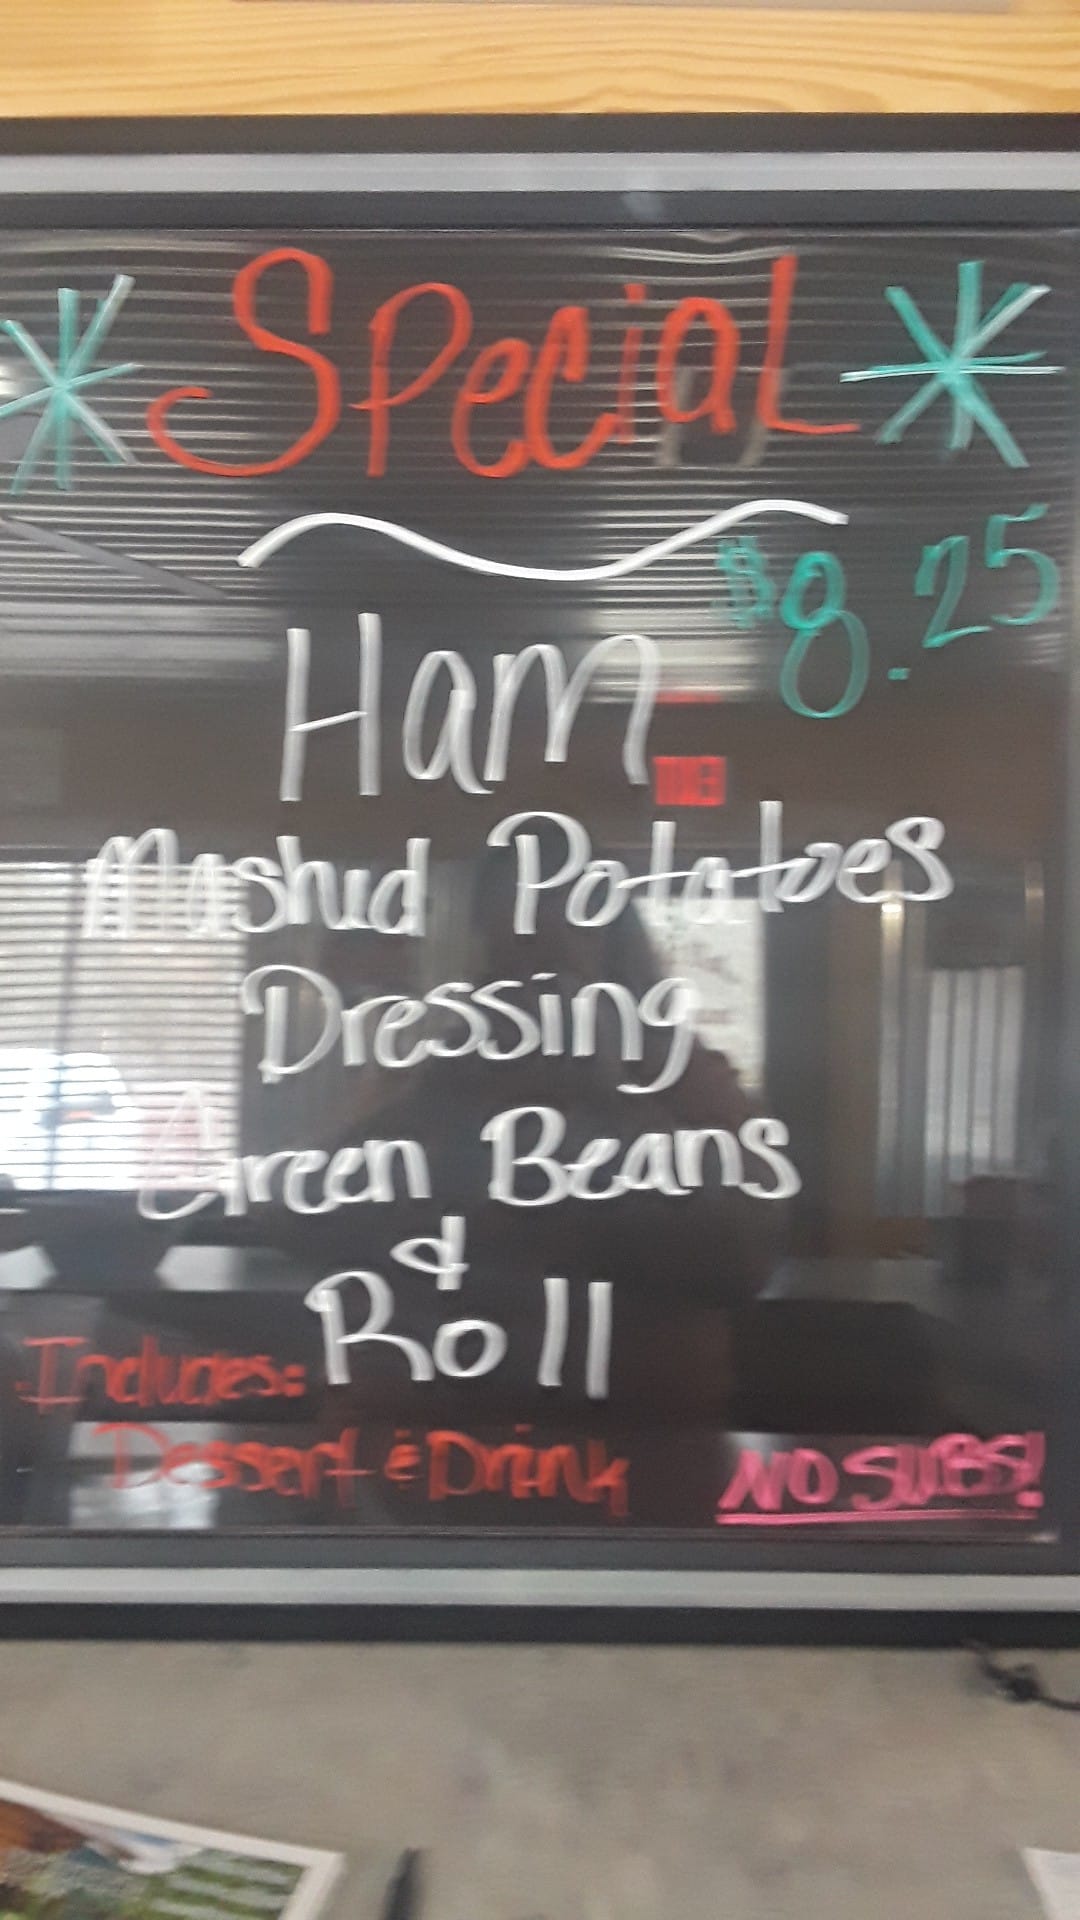 Special
$8.25
Ham
Mashed Potatoes
Dressing
Green Beans
&
Roll
Includes:
Dessert & Drink
NO SUBS!